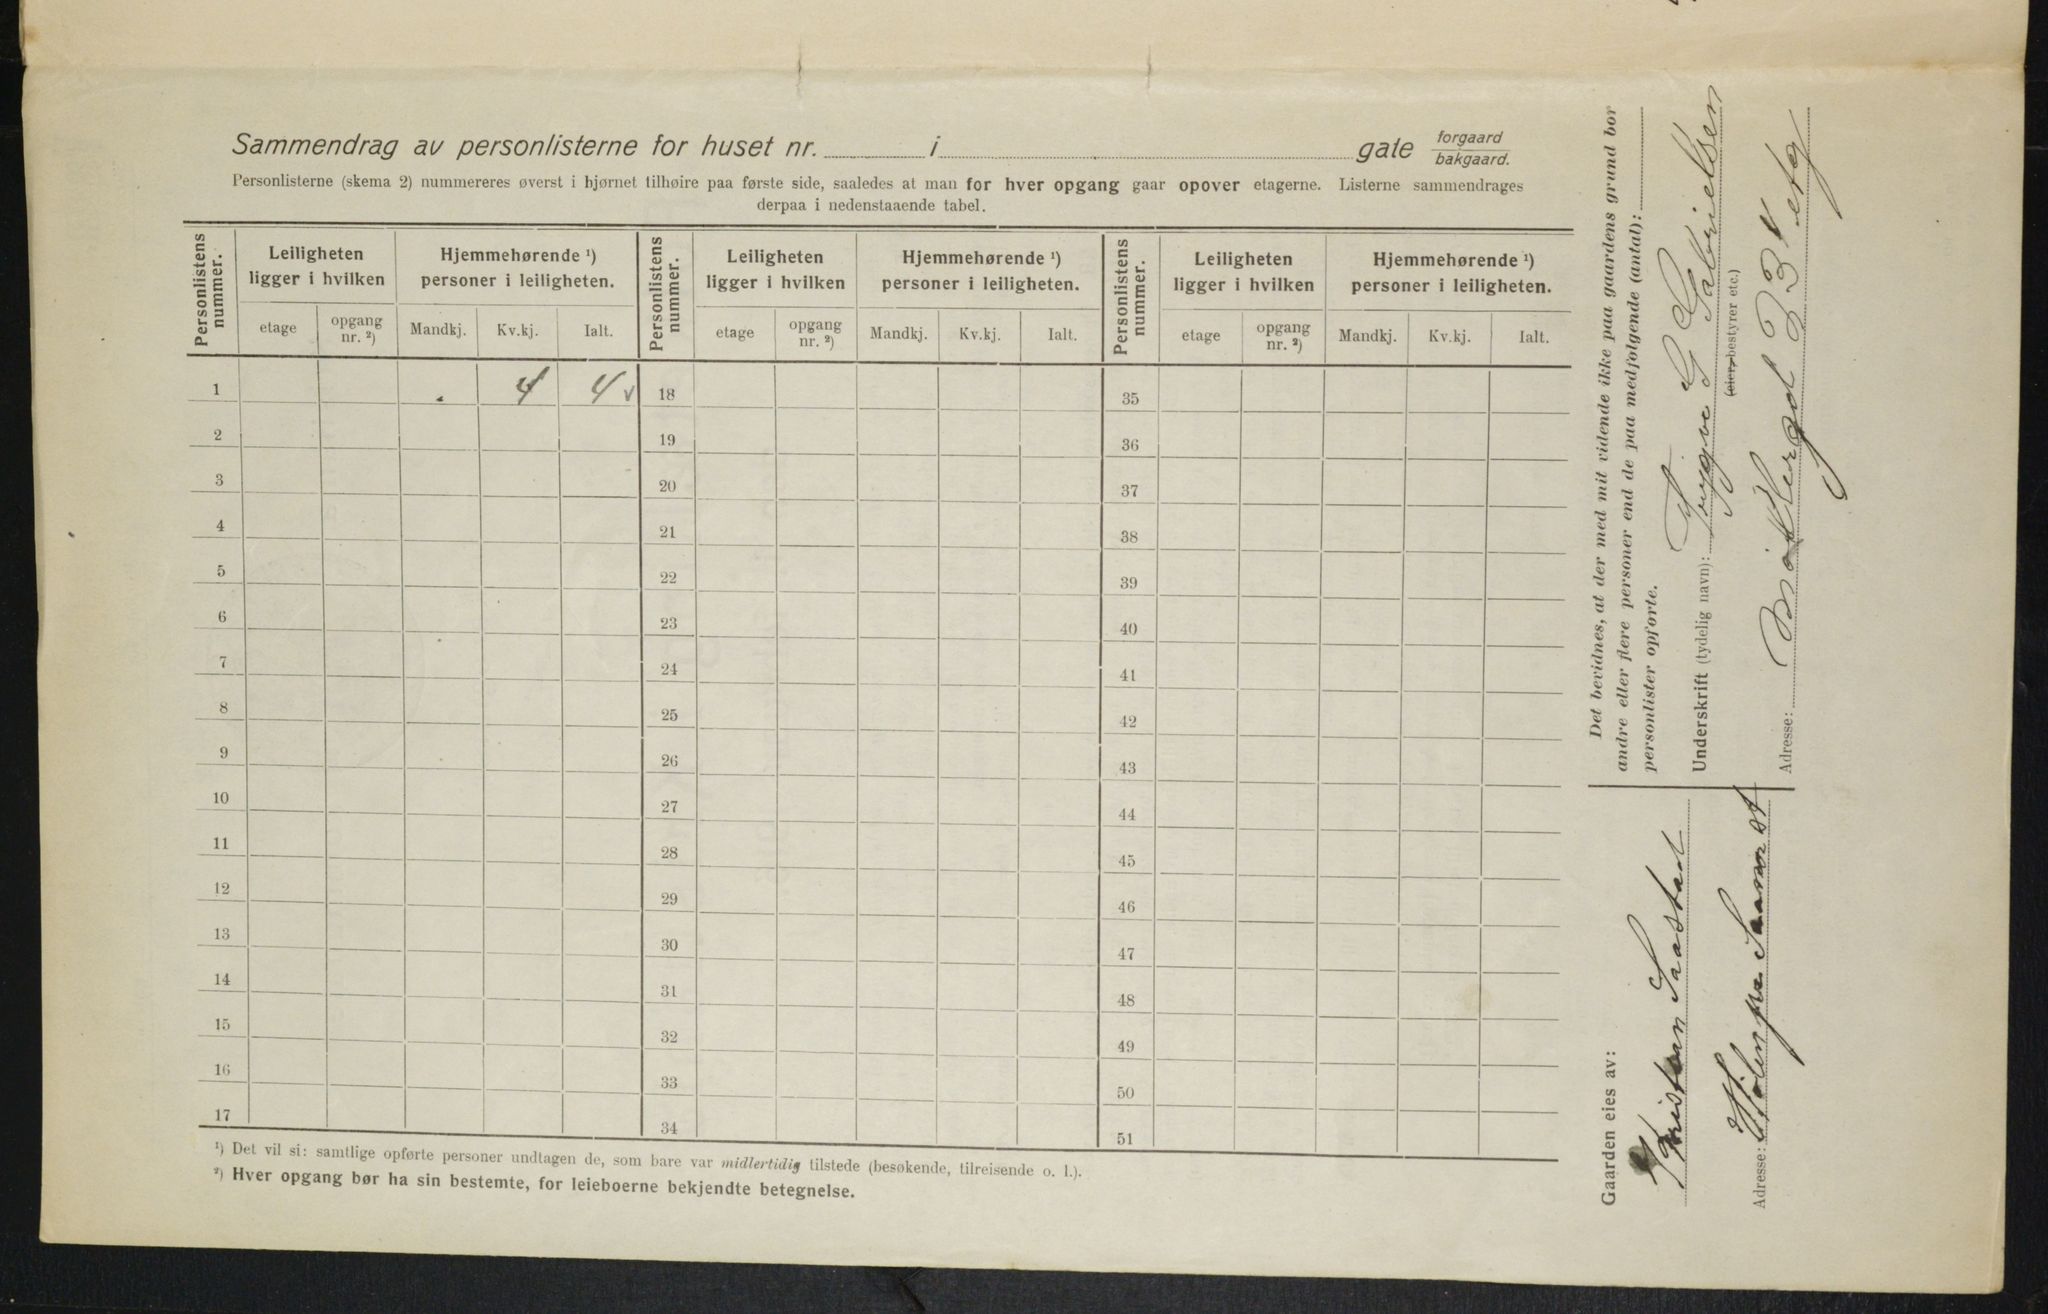 Sammendrag av personlisterne for huset nr. i gate forgaard bakgaard.
Personlisterne (skema 2) nummereres øverst i hjørnet tilhøire paa første side, saaledes at man for hver opgang gaar opover etagerne. Listerne sammendrages
derpaa i nedenstaaende tabel.
Personlistens nummer. Leiligheten ligger i hvilken Hjemmehørende ¹) personer i leiligheten. Personlistens nummer. Leiligheten ligger i hvilken Hjemmehørende ¹) personer i leiligheten. Personlistens nummer. Leiligheten ligger i hvilken Hjemmehørende ¹) personer i leiligheten.
etage opgang nr. ²) Mandkj. Kv.kj. Ialt. etage opgang nr. ²) Mandkj. Kv.kj. Ialt. etage opgang nr. ²) Mandkj. Kv.kj. Ialt.
1 . 4 4 v 18 35
2 19 36
3 20 37
4 21 38
5 22 39
6 23 40
7 24 41
8 25 42
9 26 43
10 27 44
11 28 45
12 29 46
13 30 47
14 31 48
15 32 49
16 33 50
17 34 51
¹) Det vil si: samtlige opførte personer undtagen de, som bare var midlertidig tilstede (besøkende, tilreisende o. l.).
²) Hver opgang bør ha sin bestemte, for leieboerne bekjendte betegnelse.
Gaarden eies av:
Kristian Saastad
Adresse: Hølen pr Saaner st
Det bevidnes, at der med mit vidende ikke paa gaardens grund bor
andre eller flere personer end de paa medfølgende (antal):
personlister opførte.
Underskrift (tydelig navn): Trygve G Gabrielsen
(eier, bestyrer etc.)
Adresse: Møllergt 23 V etg